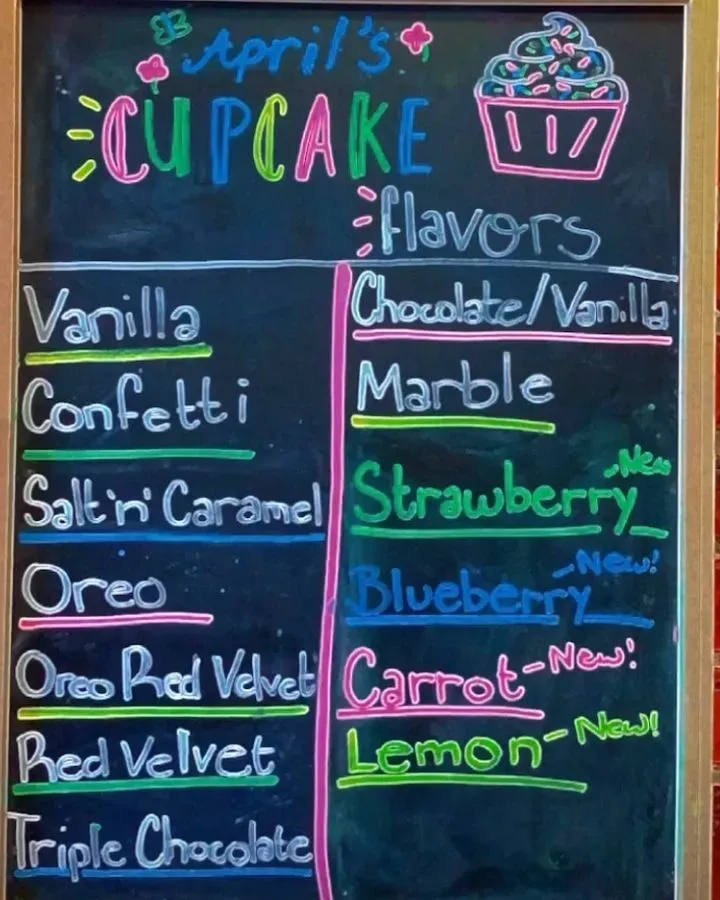 April's
CUPCAKE
flavors
Vanilla
Confetti
Salt 'n' Caramel
Oreo
Oreo Red Velvet
Red Velvet
Triple Chocolate
Chocolate/Vanilla
Marble
Strawberry - New
Blueberry - New!
Carrot - New!
Lemon - New!